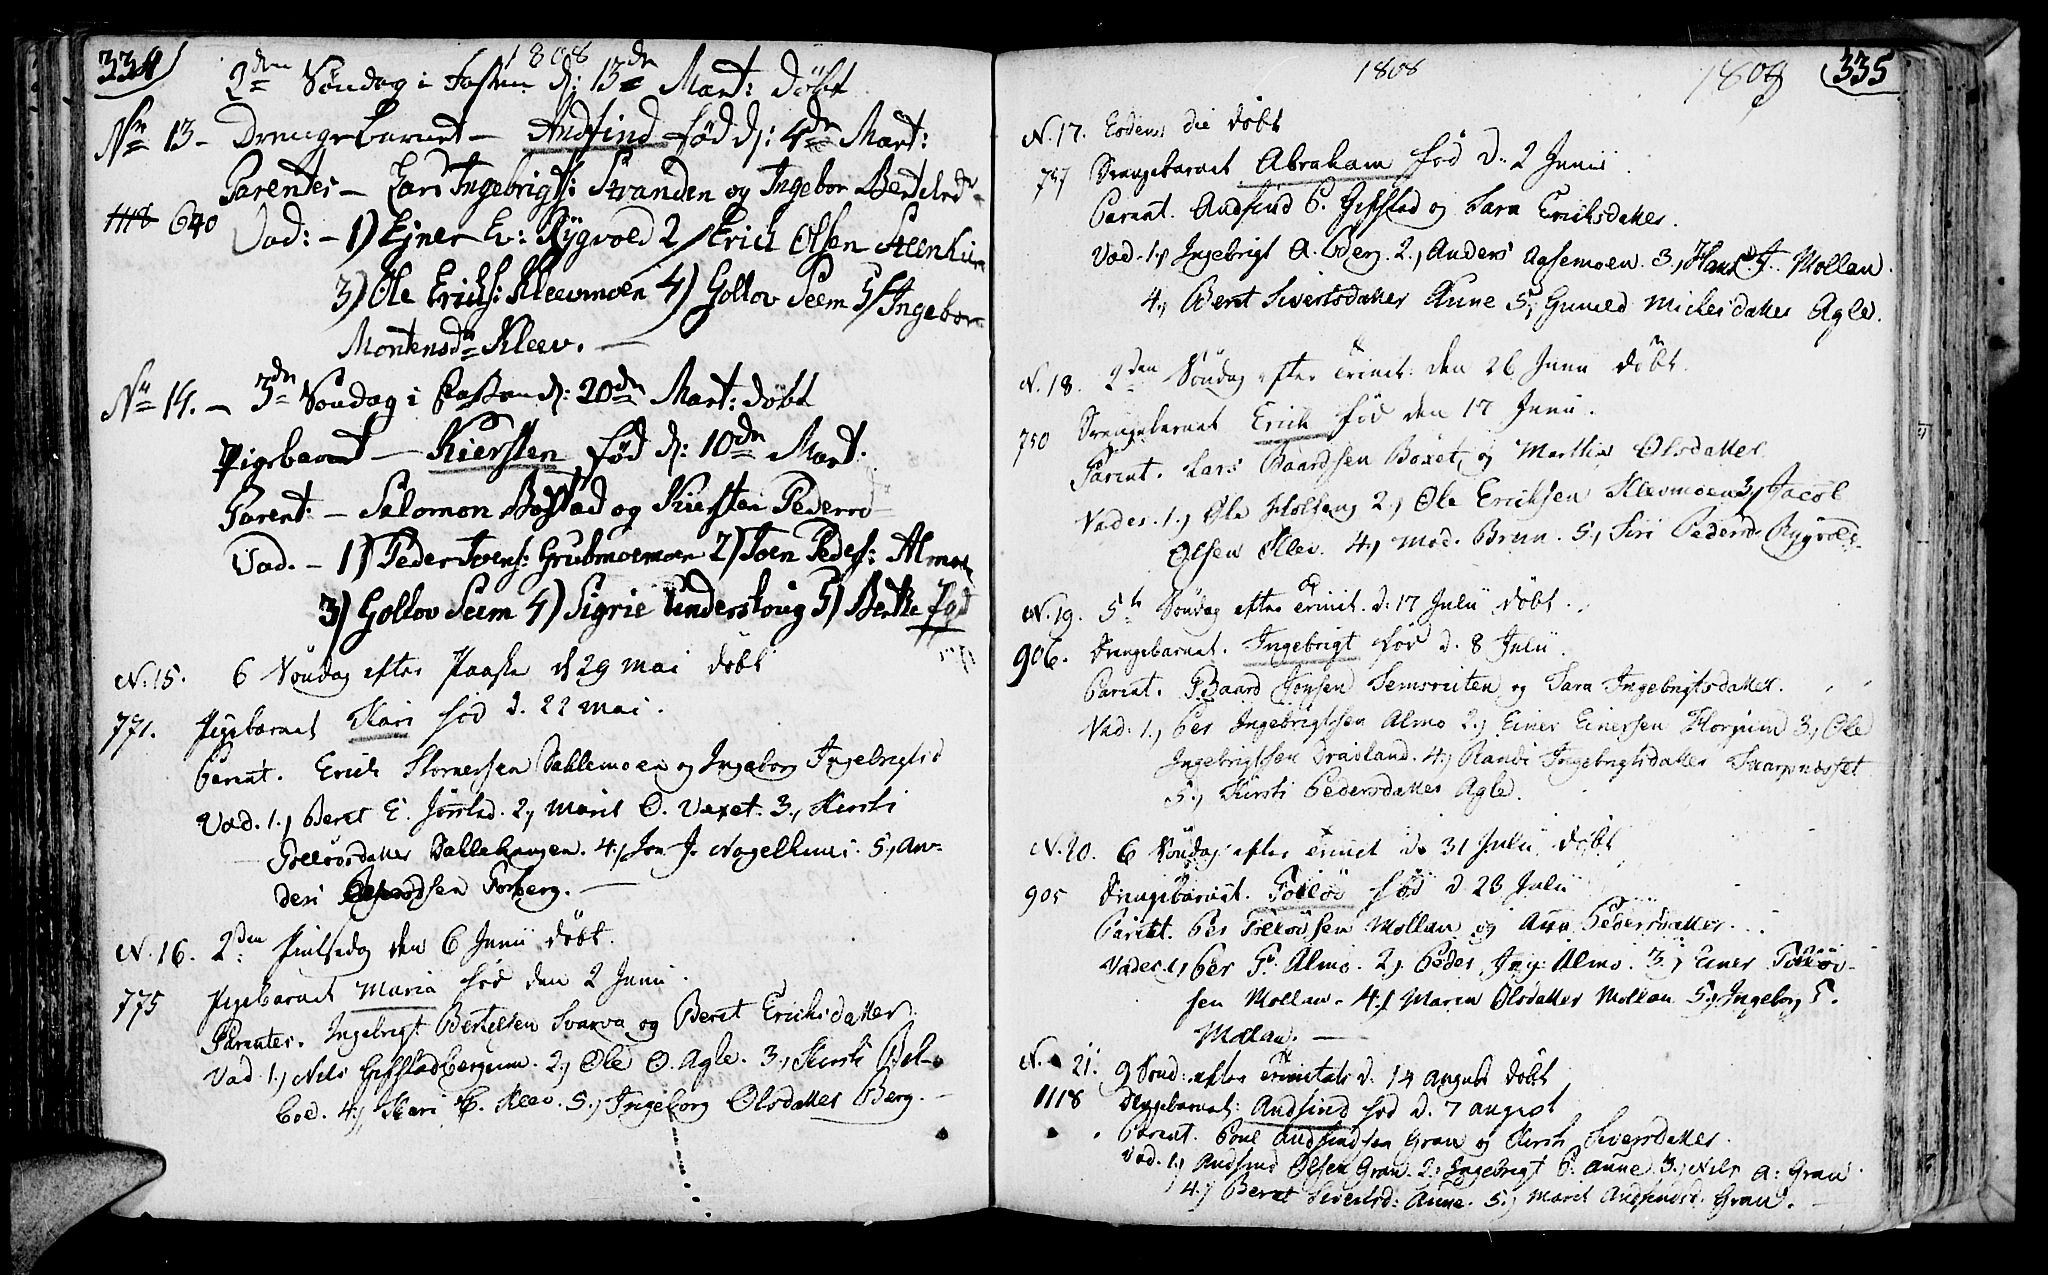 334)
1808
2den Søndag i Fasten d: 13de Mart: døbt
No 13 - Drengebarnet - Andfind fød d: 4de Mart:
Parentes - Lars Ingebrigts: Stranden og Ingebor Bertelsd
1118 640 Vad: - 1) Ejner E: Rygvold 2) Erich Olsen Steenkier
3) Ole Erichs: Kleevmoen 4) Gollov Seem 5) Ingebor
Mortensdr Kleev. -
No 14. - 3de Søndag i Fasten d: 20de Mart: døbt
Pigebarnet - Kiersten fød d: 10de Mart.
Parent: - Salomon Bostad og Kiersten Pedersd
Vad. - 1) Peder Ivers: Grubmoemoen 2) Joen Peders: Almoe
3) Gollov Seem 4) Sigrie Understouig 5) Berthe Agle
N. 15. 6 Søndag efter Paaske d 29 Mai døbt
771. Pigebarnet Kari fød d. 22 Mai.
Parent. Erich Stornessen Dahlemoen og Ingeborg Ingebrigtsd
Vad. 1., Beret E. Jørstad. 2., Marit O. Vaxet. 3., Kersti
Tolløvsdatter Dallehaugen. 4., Jon J. Nagelhuus. 5., An-
ders Olsen Forberg. -
N. 16. 2den Pintsedag den 6 Junii døbt.
775 Pigebarnet Maria fød den 2 Junii.
Parentes. Ingebrigt Bertelsen Svarva og Beret Erichsdatter.
Vad. 1., Nils Gifstadbergum. 2., Ole O. Agle. 3., Kersti Bel-
boe. 4., Kari P. Kleev. 5., Ingeborg Olsdatter Berg. -
1808
1808
(335
N. 17. Eodem die døbt
757 Drengebarnet Abraham fød d. 2 Junii.
Parent. Andfind P. Gifstad og Sara Erichsdatter.
Vad. 1., Ingebrigt A. Berg. 2., Anders Aasemoen. 3., Hans J. Mollan.
4., Beret Sivertsdatter Aune 5., Gunild Michelsdatter Agle.
N. 18. 2den Søndag efter Trinit: den 26 Junii døbt.
750 Drengebarnet Erich fød den 17 Junii.
Parent. Lars Baardsen Boxet, og Marthe Olsdatter.
Vades. 1., Ole Holseng 2., Ole Erichsen Kleevmoen 3., Jacob
Olsen Kleev. 4., Mad. Brun. 5., Siri Pedersd. Rygvold.
N. 19. 5te Søndag efter Trinit. d. 17 Julii døbt.
906. Drengebarnet. Ingebrigt fød d. 8 Julii.
Parent. Baard Jonsen Semsruten og Sara Ingebrigtsdatter.
Vad: 1., Per Ingebrigtsen Almo 2., Einer Einersen Florgiim 3., Ole
Ingebrigtsen Travland. 4., Randi Ingebrigtsdatter Skarpnæsset
5., Kersti Pedersdatter Agle.
N. 20. 6 Søndag efter Trinit d. 31 Julii døbt
905 Drengebarnet. Tolløv fød d 23 Julii
Parent. Per Tolløvsen Mollan og Ann Pedersdatter.
Vades. 1., Per P. Almo. 2., Peder Ing: Almo. 3., Einer Tolløv-
sen Mollan. 4., Maren Olsdatter Mollan 5., Ingeborg T.
Mollan. -
N. 21. 9 Sønd: efter Trinitatis d. 14 August døbt
1118 Drengebarnet: Andfind fød d. 7 august
Parent. Poul Andfindsen Gran og Kersti Siversdatter.
Vad. 1., Andfind Olsen Gran. 2., Ingebrigt P. Aune. 3., Nils A: Gran
4., Beret Sivertsd: Aune. 5., Maret Andfindsd. Gran. -